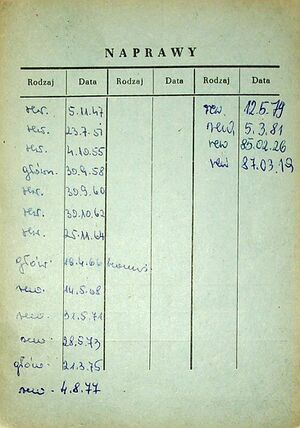 NAPRAWY
Rodzaj Data Rodzaj Data Rodzaj Data
rew. 5.11.47
rew. 23.7.51
rew. 4.10.55
główn. 30.9.58
rew. 30.9.60
rew. 30.10.62
rew. 25.11.64
główn. 18.4.66
rew 14.5.68
rew 31.5.71
rew. 28.5.73
główn. 21.3.75
rew. 4.8.77
rew. 12.5.79
rew. 5.3.81
rew 85.02.26
rew 87.03.19